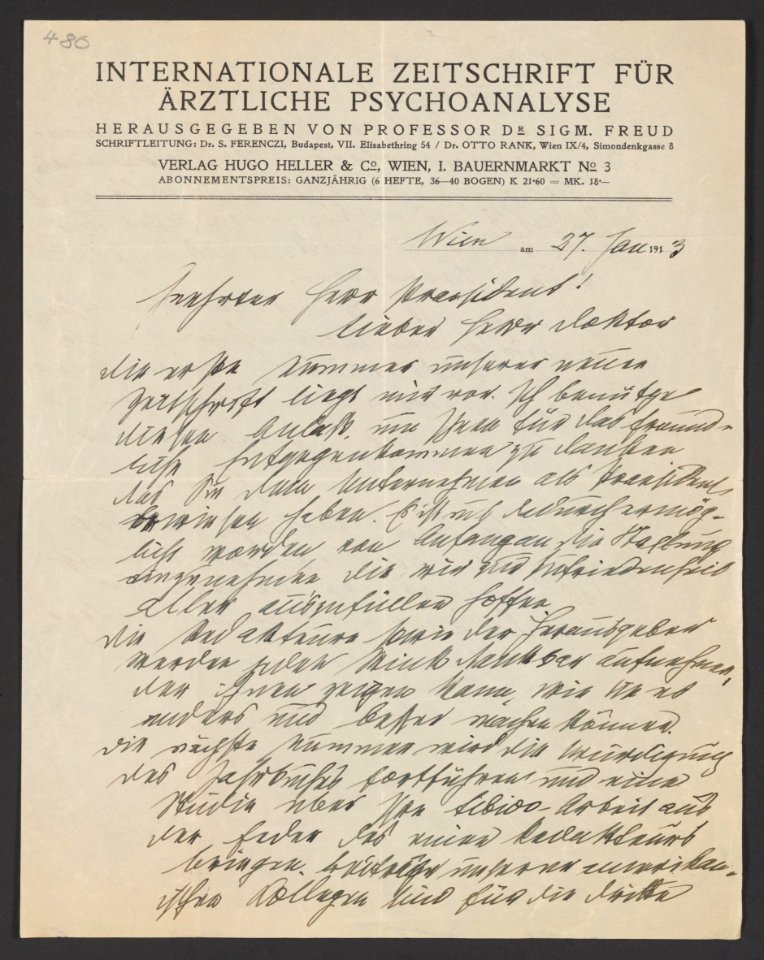 486
INTERNATIONALE ZEITSCHRIFT FÜR
ÄRZTLICHE PSYCHOANALYSE
HERAUSGEGEBEN VON PROFESSOR DR SIGM. FREUD
SCHRIFTLEITUNG: Dr. S. FERENCZI, Budapest, VII. Elisabethring 54 / Dr. OTTO RANK, Wien IX/4, Simondenkgasse 8
VERLAG HUGO HELLER & Co, WIEN, I. BAUERNMARKT No 3
ABONNEMENTSPREIS: GANZJÄHRIG (6 HEFTE, 36—40 BOGEN) K 21·60 = MK. 18·—
Wien am 27. Jan 1913
Geehrter Herr Praesident!
Lieber Herr Doktor
Die erste Nummer unserer neuen
Zeitschrift liegt mir vor. Ich benütze
diesen Anlaß, um Ihnen für das freund-
liche Entgegenkommen zu danken
das Sie dem Unternehmen als Praesident
bewiesen haben. Es ist uns dadurch ermög-
licht worden von Anfang an die Stellung
einzunehmen die wir zur Zufriedenheit
Aller auszufüllen hoffen.
Die Redakteure sowie der Herausgeber
werden jeden Wink dankbar aufnehmen,
der ihnen zeigen kann, wie sie es
anders und besser machen können.
Die nächste Nummer wird die Würdigung
des Jahrbuches fortführen und eine
Studie über Ihre Libido-Arbeit aus
der Feder des einen Redakteurs
bringen. Beiträge unserer amerikan-
ischen Kollegen sind für die dritte